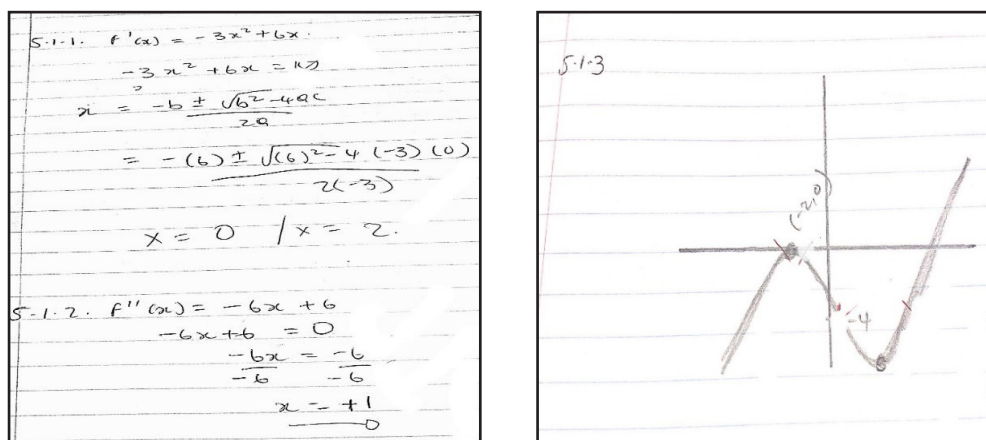 5.1.1. f'(x) = -3x² + 6x.
-3x² + 6x =
x = -b ± √b² - 4ac
2a
= -(6) ± √(6)² - 4(-3)(0)
2(-3)
x = 0 / x = 2.
5.1.2. f''(x) = -6x + 6
-6x + 6 = 0
-6x = -6
-6 -6
x = +1
5.1.3
(-2,0)
-4